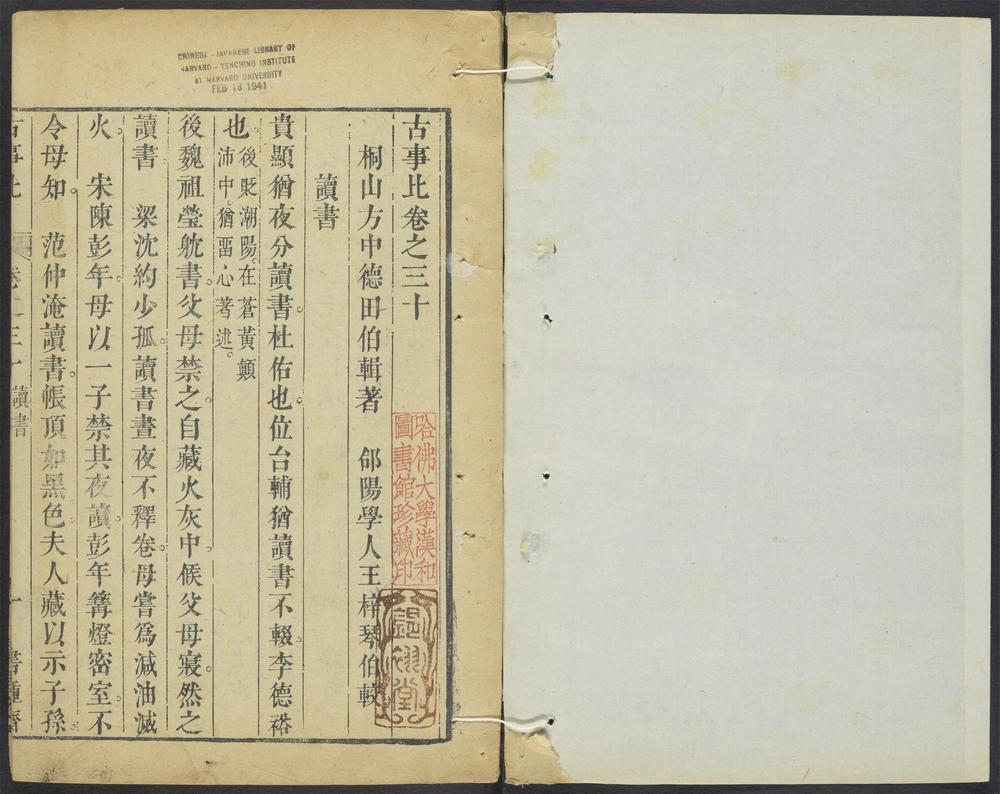 CHINESE - JAPANESE LIBRARY OF
HARVARD - YENCHING INSTITUTE
AT HARVARD UNIVERSITY
FEB 18 1941
古事比卷之三十
桐山方中德田伯輯著　郃陽學人王梓琴伯較
讀書
貴顯猶夜分讀書杜佑也位台輔猶讀書不輟李德裕
也後貶潮陽在蒼黃顛
沛中猶畱心著述
後魏祖瑩躭書父母禁之自藏火灰中候父母寢然之
讀書　梁沈約少孤讀書晝夜不釋卷母嘗爲減油滅
火　宋陳彭年母以一子禁其夜讀彭年篝燈密室不
令母知　范仲淹讀書帳頂如黑色夫人藏以示子孫
古事比　卷之三十　讀書　一　書種齋
哈佛大學漢和
圖書館珍藏印